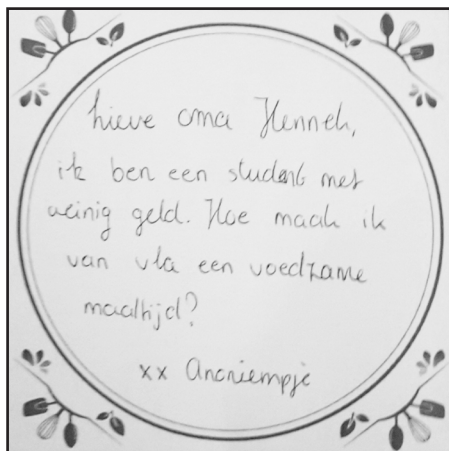 Lieve oma Hennek,
ik ben een student met
weinig geld. Hoe maak ik
van vla een voedzame
maaltijd?
xx Anoniempje